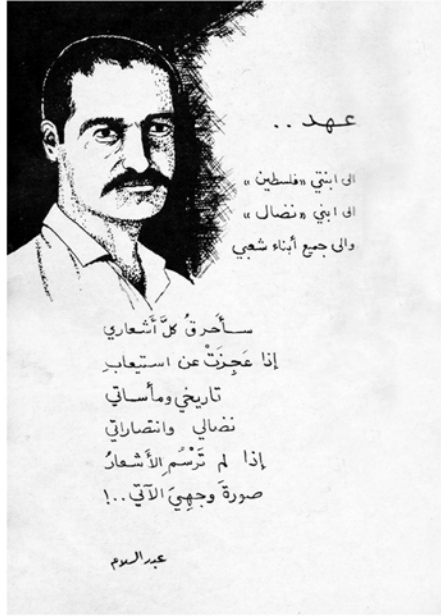 عهد ..
الى ابنتي «فلسطين»
الى ابني «نضال»
والى جميع أبناء شعبي
سأحرقُ كلَّ أشعاري
إذا عَجِزَتْ عن استيعابِ
تاريخي ومأساتي
نضالي وانتصاراتي
إذا لم تَرْسُمِ الأشعارُ
صورةَ وجهِيَ الآتي..!
عبد السلام